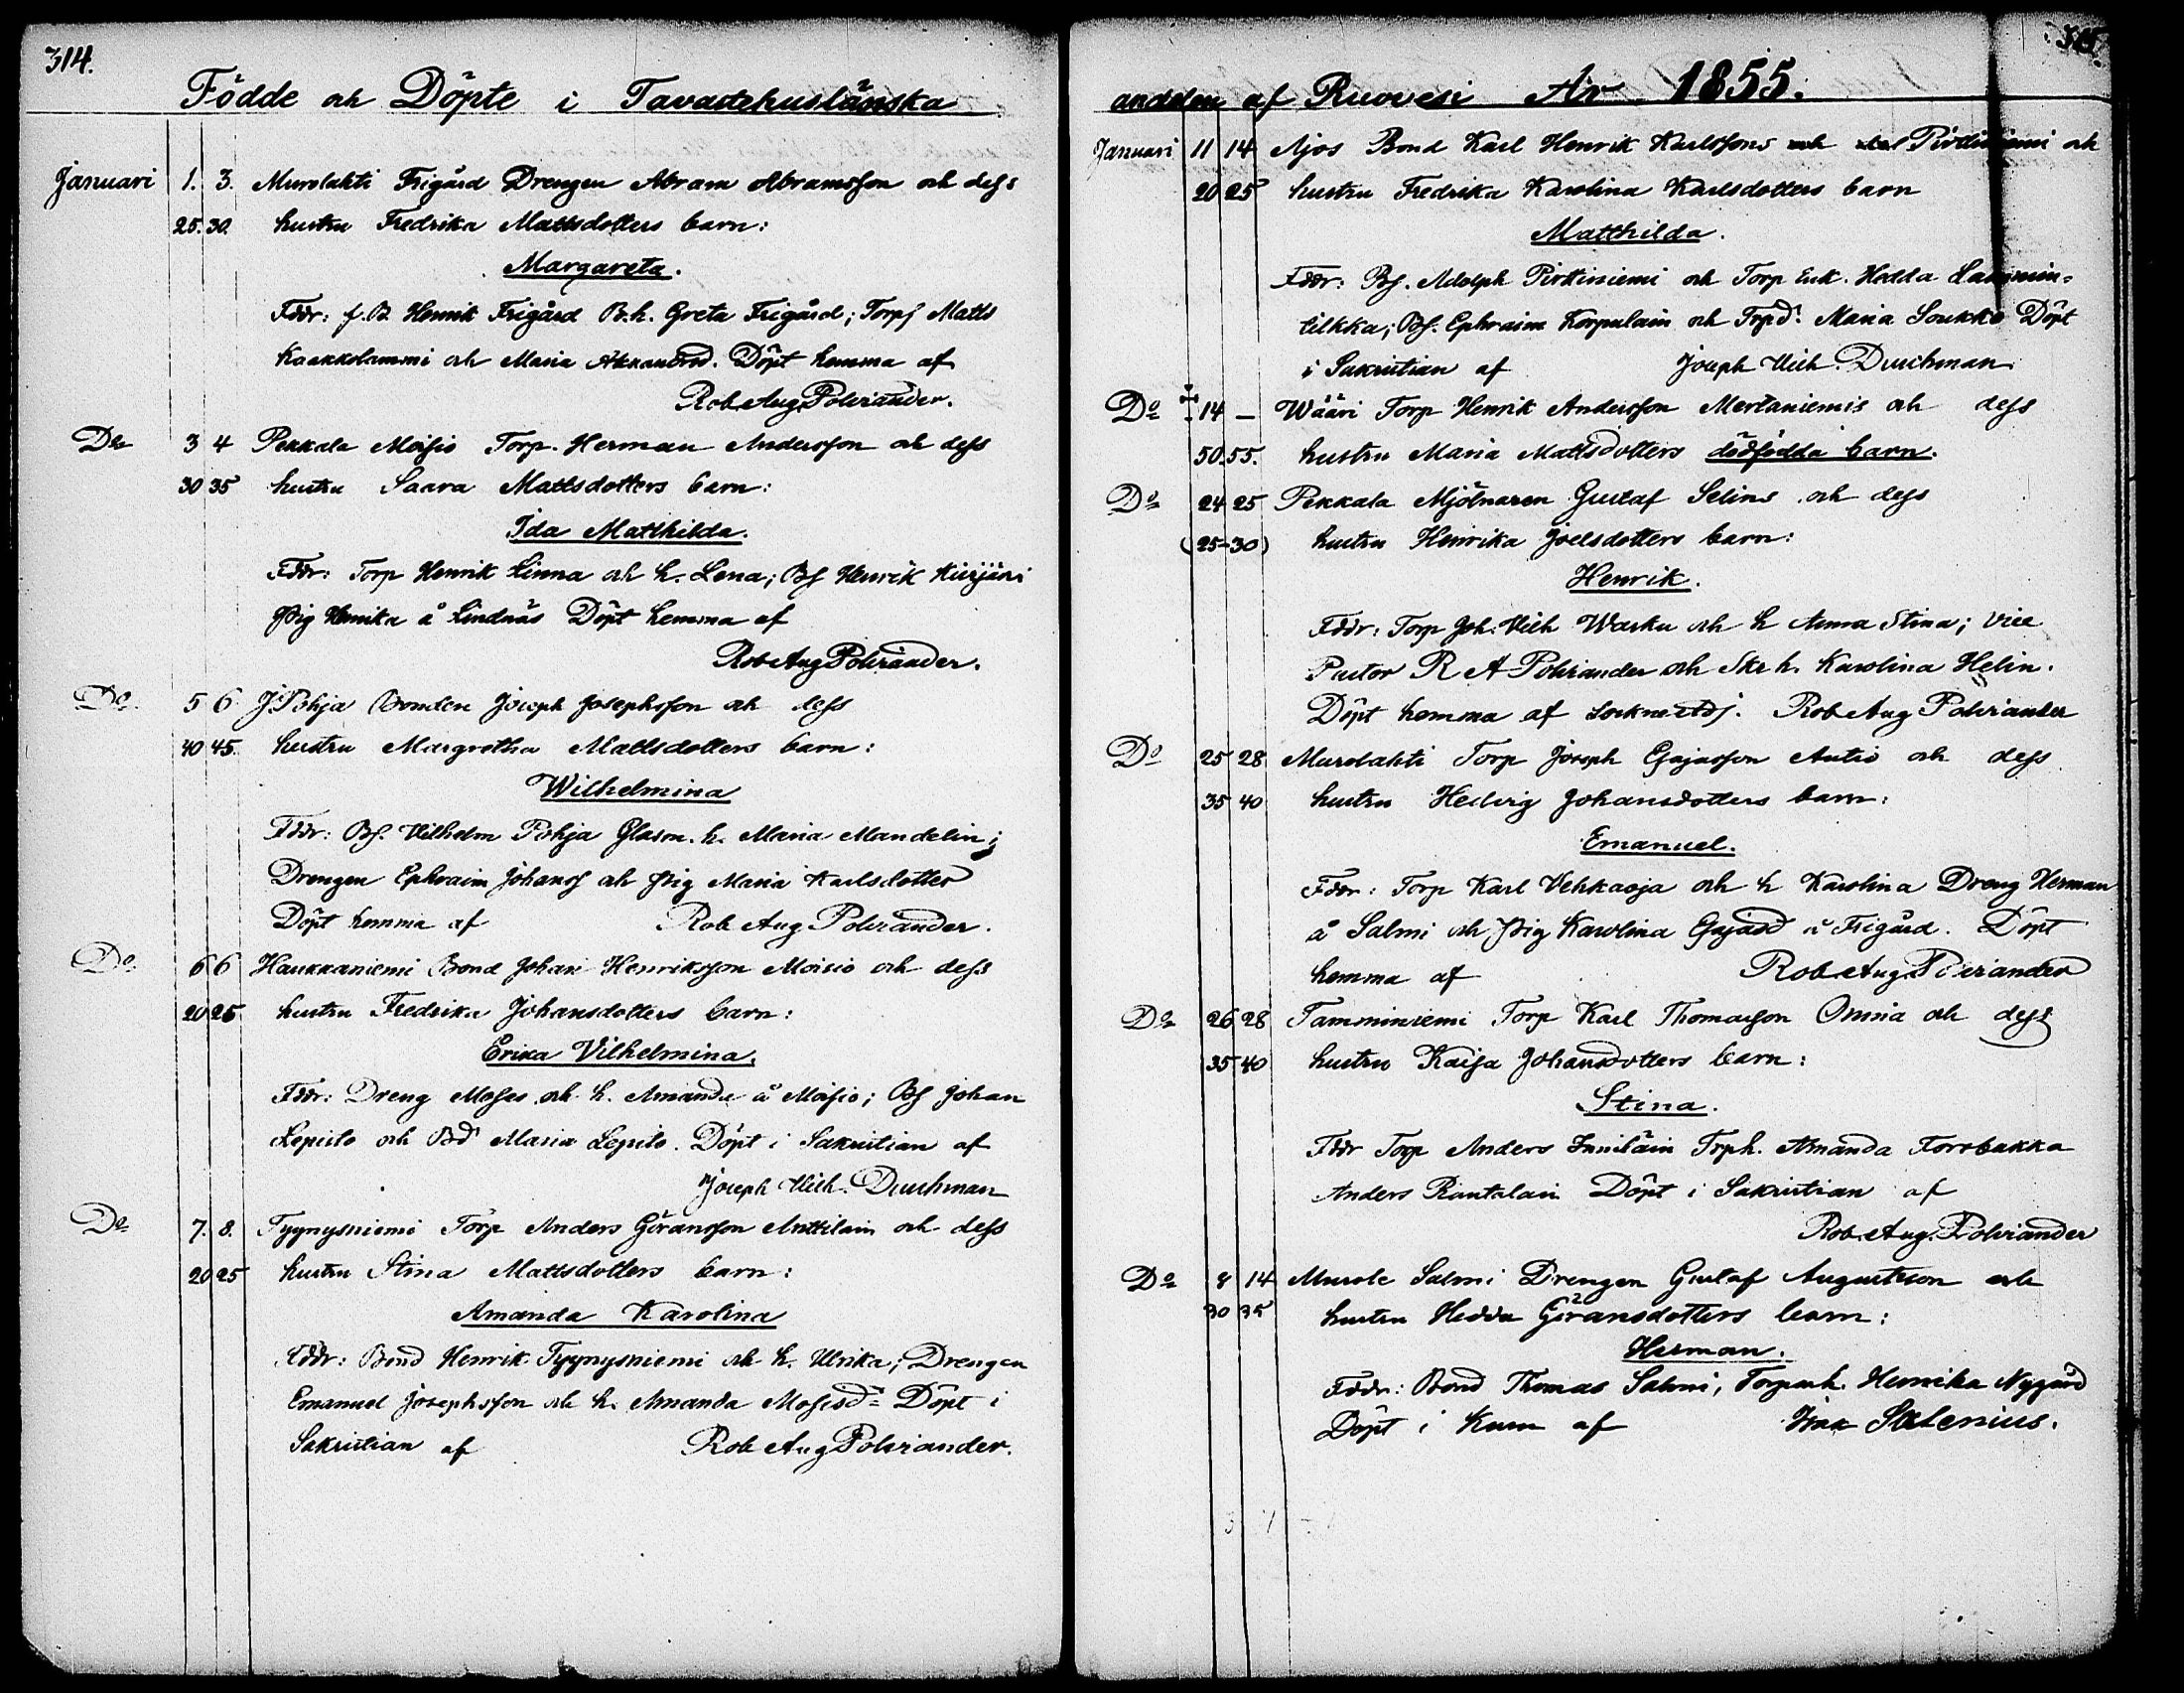 314.
Födde och Döpte i Tavastehuslänska
Januari 1. 3. Murolahti Frigård Drengen Abram Abramsson och dess
25. 30. hustru Fredrika Mattsdotters barn:
Margareta.
Fddr: f.B. Henrik Frigård B.h. Greta Frigård; Torps Matts
Kaakkolammi och Maria Döpt hemma af
Rob. Aug. Polviander.
Do 3 4 Pekkala Moisio Torp. Herman Andersson och dess
30 35 hustru Saara Mattsdotters barn:
Ida Mathilda.
Fddr: Torp Henrik Linna och h. Lena; Bs Henrik
Pig Henrika å Lindnäs Döpt hemma af
Rob Aug Polviander.
Do 5 6 J. Pohja Bonden Joseph Josephsson och dess
40 45. hustru Margretha Mattsdotters barn:
Wilhelmina
Fddr: Bs. Vilhelm Pohja Glasm. h. Maria Mandelin;
Drengen Ephraim Johanss och Pig Maria Karlsdotter
Döpt hemma af Rob Aug Polviander.
Do 6 6 Haukkaniemi Bond Johan Henriksson Moisio och dess
20 25 hustru Fredrika Johansdotters barn:
Erika Vilhelmina.
Fddr: Dreng Moses och h. Amanda å Moisio; Bs Johan
Lepistö och Bd Maria Lepistö. Döpt i Sakristian af
Joseph Vilh. Duchman
Do 7. 8. Tyynysniemi Torp Anders Göransson Anttilain och dess
20 25 hustru Stina Mattsdotters barn:
Amanda Karolina
Fddr: Bond Henrik Tyynysniemi och h. Ulrika; Drengen
Emanuel Josephsson och h. Amanda Mosesd= Döpt i
Sakristian af Rob Aug Polviander.
315
andelen af Ruovesi År 1855.
Januari 11 14 Ajos Bond Karl Henrik Karlssons och Pirttiniemi och
20 25 hustru Fredrika Karolina Karlsdotters barn
Matthilda.
Fddr: Bs. Adolph Pirttiniemi och Torp Enk. Hedda Lammin-
lilkka; Bs. Ephraim Korpulain och Trpd. Maria Soukko Döpt
i Sakristian af Joseph Vilh. Duchman
Do 14 — Wääri Torp Henrik Andersson Mertaniemis och dess
50. 55. hustru Maria Mattsdotters dödfödda barn.
Do 24 25 Pekkala Mjölnaren Gustaf Selins och dess
(25-30) hustru Henrika Joelsdotters barn:
Henrik.
Fddr: Torp Joh. Vilh Warku och h Anna Stina; Vice
Pastor R A Polviander och Skr h. Karolina Helin.
Döpt hemma af Sockne Adj. Rob Aug Polviander
Do 25 28 Murolahti Torp Joseph Esajasson Autio och dess
35 40 hustru Hedvig Johansdotters barn:
Emanuel.
Fddr: Torp Karl Vehkaoja och h Karolina Dreng Herman
å Salmi och Pig Karolina Esajasd å Frigård. Döpt
hemma af Rob. Aug. Polviander
Do 26 28 Tamminiemi Torp Karl Thomasson Onnia och dess
35 40 hustru Kaisa Johansdotters barn:
Stina.
Fddr Torp Anders Trph. Amanda Forsbakka
Anders Rantalain Döpt i Sakristian af
Rob. Aug. Polviander
Do 8 14 Murole Salmi Drengen Gustaf Augustsson och
30 35 hustru Hedda Göransdotters barn:
Herman.
Fddr: Bond Thomas Salmi, Torpareh. Henrika Nygård
Döpt i Kuru af Isak Salenius.